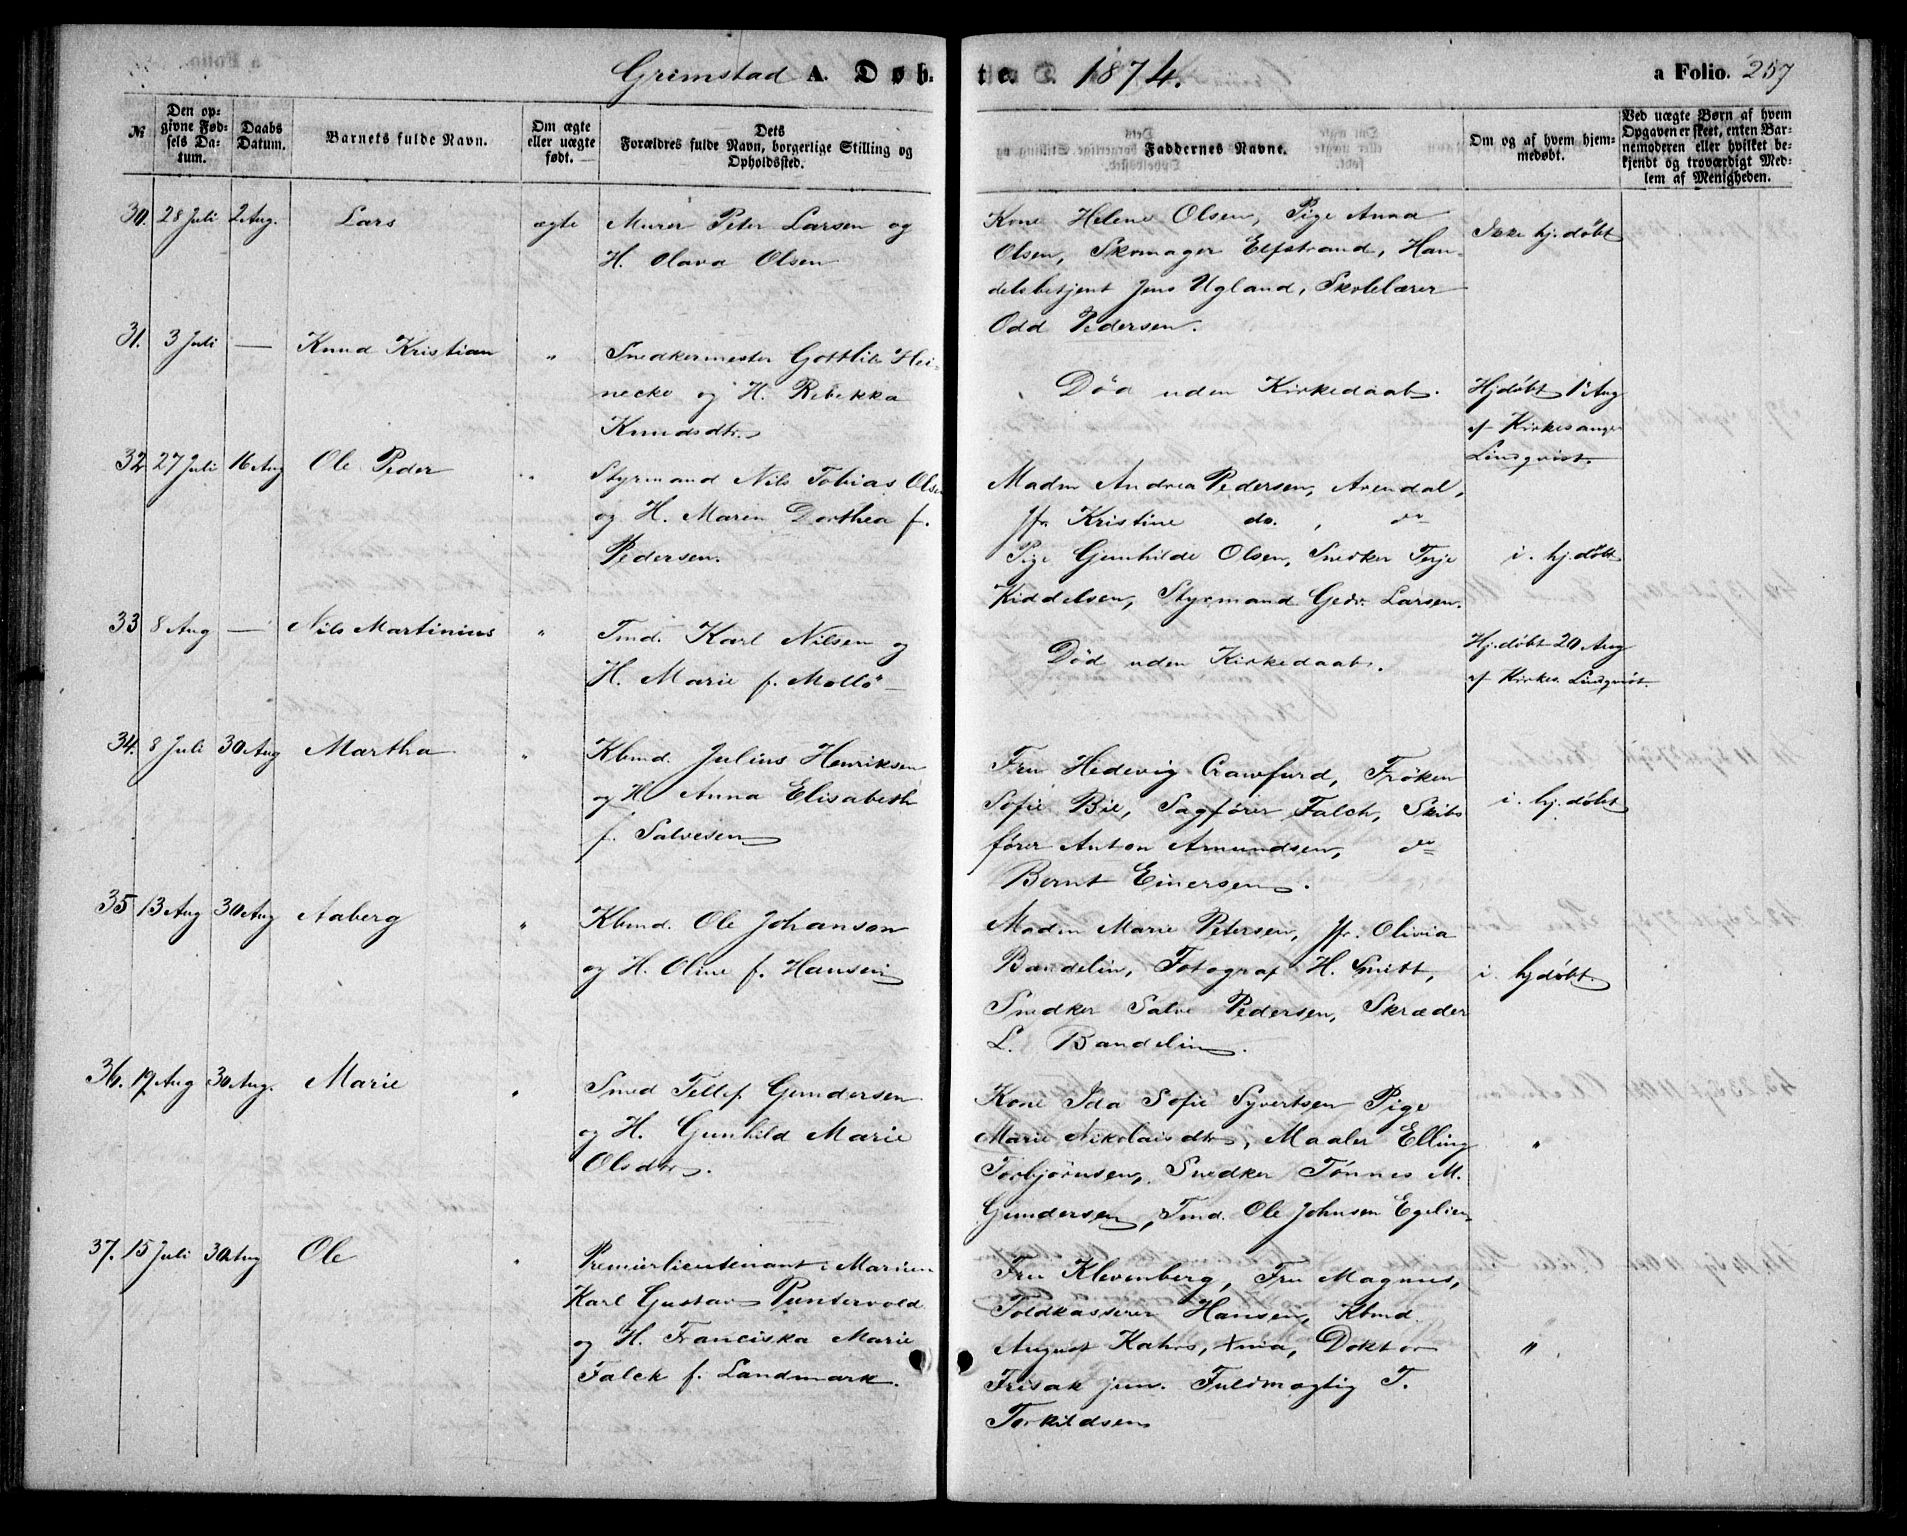 Grimstad A. Døbte. 1874. a Folio. 257
№
Den opgivne Fødsels Datum.
Daabs Datum.
Barnets fulde Navn.
Om ægte eller uægte født.
Dets Forældres fulde Navn, borgerlige Stilling og Opholdssted.
Faddernes Navne.
Om og af hvem hjemmedøbt.
Ved uægte Børn af hvem Opgaven er skeet, enten Barnemoderen eller hvilket bekjendt og troværdigt Medlem af Menigheden.
30. 28 Juli 2 Aug. Lars ægte Murer Peter Larsen og
H. Olava Olsen
Kone Helene Olsen, Pige Anna
Olsen, Skomager Elfstrand, Han-
delsbetjent Jens Ugland, Skolelærer
Odd Pedersen.
Ikke hj. døbt
31. 3 Juli — Knud Kristian " Snedkermester Gottlib Hei-
necke og H. Rebekka
Knudsdtr.
Død uden Kirkedaab.
Hjdøbt 1 Aug
af Kirkesanger
Lindqvist.
32 27 Juli 16 Aug Ole Peder " Styrmand Nils Tobias Olsen
og H. Maren Dorthea f.
Pedersen.
Madm Andrea Pedersen, Arendal,
Jfr Kristine do. , do
Pige Gunhilde Olsen, Snedker Terje
Kiddelsen, Styrmand Gedr. Larsen.
i. hj. døbt
33 8 Aug — Nils Martinius " Tmd. Karl Nilsen og
H. Marie f. Mollö
Død uden Kirkedaab.
Hj. døbt 20 Aug
af Kirkes. Lindqvist.
34. 8 Juli 30 Aug Martha " Kbmd. Julius Henriksen
og H. Anna Elisabeth
f. Salvesen
Fru Hedevig Crawfurd, Frøken
Sofie Bie, Sagfører Falch, Skibs
fører Anton Amundsen, do
Bernt Einersen.
i. hj. døbt
35 13 Aug 30 Aug Aaberg " Kbmd. Ole Johanson
og H. Oline f. Hansen
Madm Marie Petersen, Jfr. Olivia
Bandelin, Fotograf H. Smitt,
Snedker Salve Pedersen, Skræder
L. Bandelin.
i. hjdøbt.
36. 19 Aug 30 Aug. Marie " Smed Tellef Gundersen
og H. Gunhild Marie
Olsdtr.
Kone Ida Sofie Syvertsen Pige
Marie Nikolaisdtr, Maaler Elling
Torbjörnsen, Snedker Tönnes M.
Gundersen, Tmd. Ole Johnsen Egelien
"
37. 15 Juli 30 Aug Ole " Premierlieutenant i Marinen
Karl Gustav Puntervold
og H. Franciska Marie
Falck f. Landmark.
Fru Klevenberg, Fru Magnus,
Toldkasserer Hansen, Kbmd.
August Kahrs, Doktor
Frisak jun. Fuldmægtig T.
Torkildsen
"